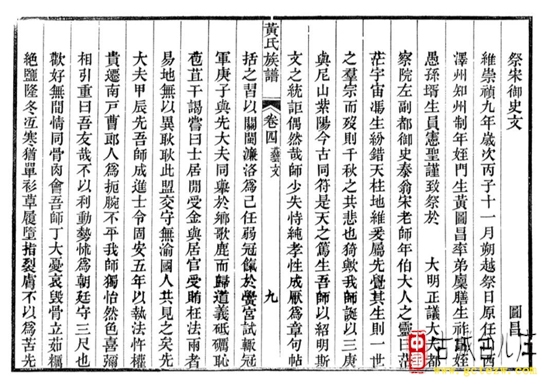 祭宋御史文
圖昌
維崇禎九年歲次丙子十一月朔越祭日原任山西
澤州知州制年姪門生黃圖昌率弟廩膳生祚
愚孫壻生員憲聖謹致祭於 大明正議大夫都
察院左副都御史泰翁宋老師年伯大人之靈曰茫
茫宇宙馮生紛錯天柱地維爰屬先覺其生則一世
之羣宗而歿則千秋之共悲也猗歟我師誕以三庚
與尼山紫陽今古同符是天之篤生吾師以紹明斯
文之統詎偶然哉吾師少失恃純孝性成厭爲章句帖
括之習以關閩濂洛爲己任弱冠餼於黌宮試輒冠
軍庚子與先大夫同舉於鄉歌鹿而歸道義砥礪恥
苞苴干謁嘗曰士居閒受金與居官受賄枉法有兩
易地無以異耿耿此盟交守無渝國人共見之矣先
大夫甲辰先吾師成進士令固安五年以執法忤權
貴遷南戶曹郎人爲扼腕不平我師獨怡然色喜彌
相引重曰吾友哉不以利動勢怵爲朝廷守三尺也
歡好無間情同骨肉會吾師丁大憂哀毀骨立茹糲
絶鹽隆冬沍寒猶單衫草履墮指裂膚不以爲苦先
黃氏族譜
卷四 藝文
九